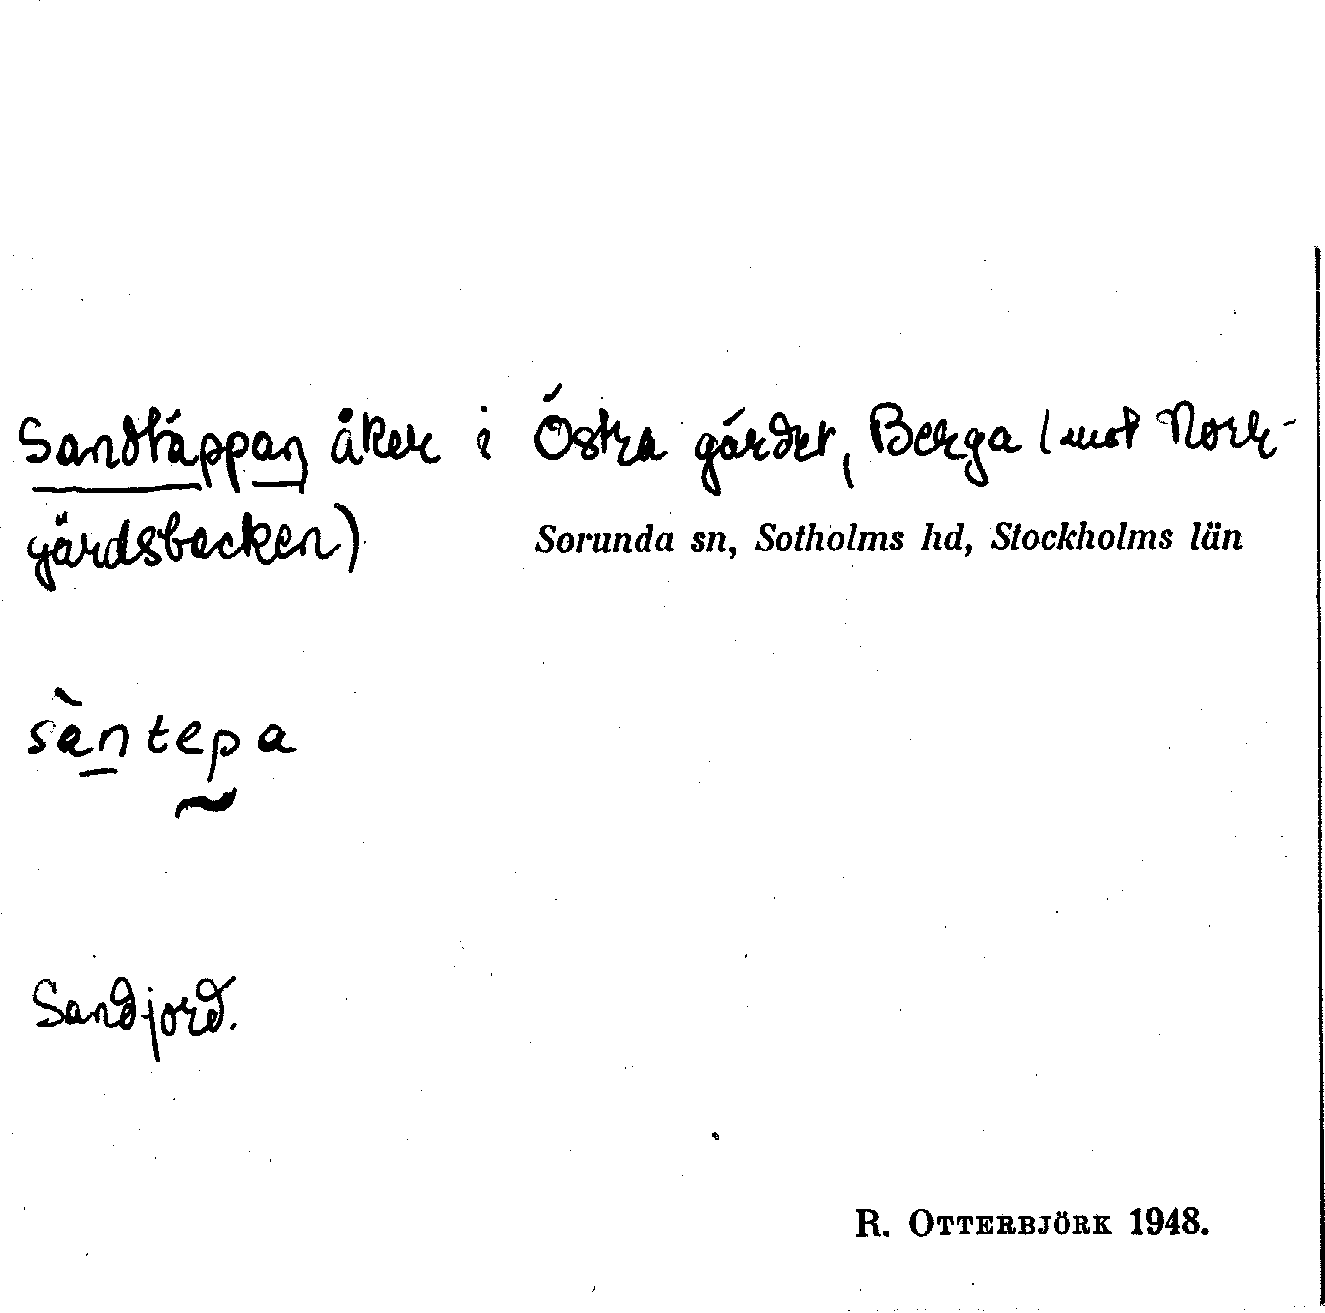 Sandtäppan åker i Östra gärdet, Berga (mot Norr-
gårdsbacken)
Sorunda sn, Sotholms hd, Stockholms län
sàntepa
Sandjord.
R. OTTERBJÖRK 1948.